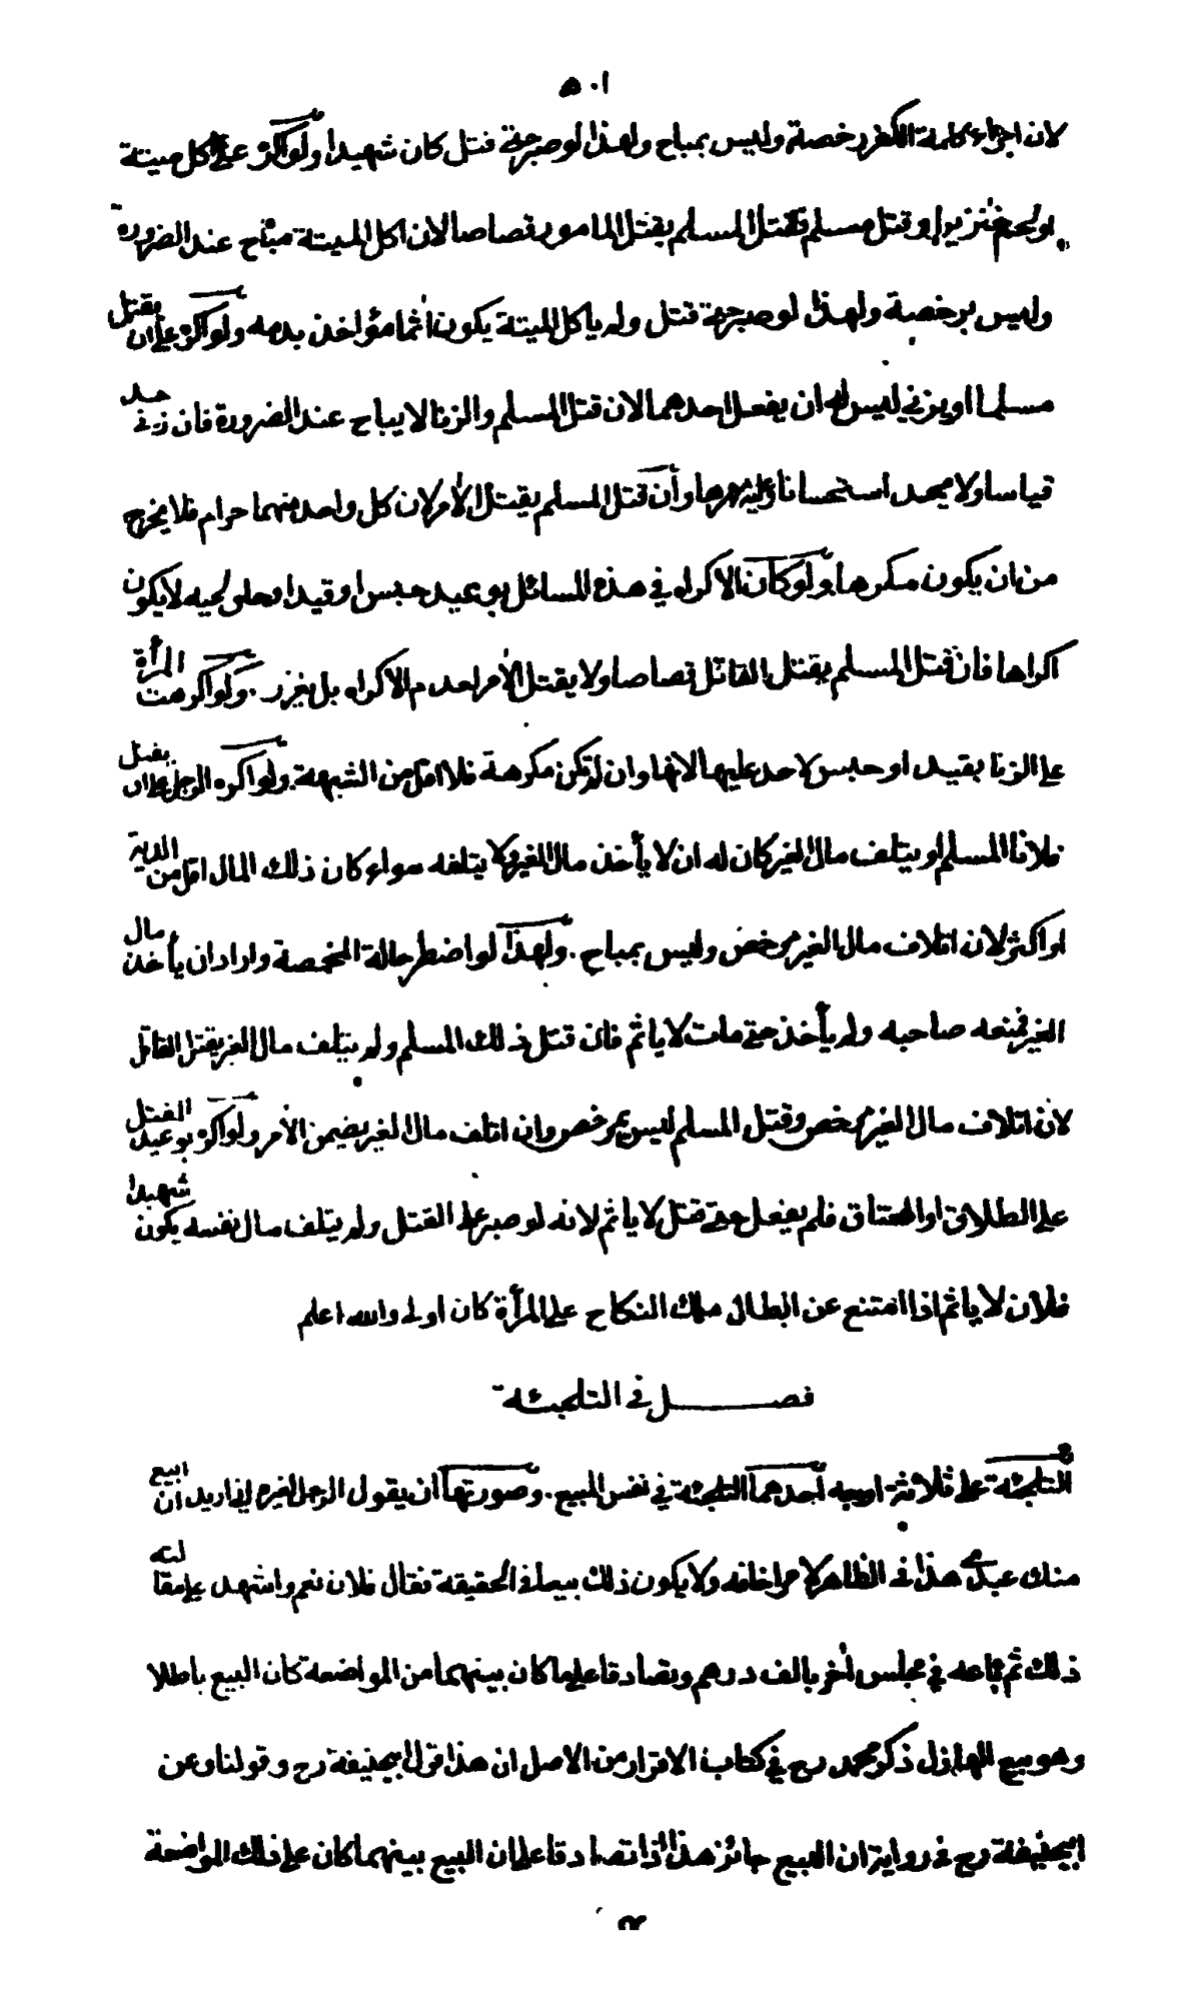 ٥٠١
لان اجراء كلمة الكفر رخصة وليس بمباح ولهذا لو صبر حتى قتل كان شهيدا ولو اكره على اكل ميتة
او لحم خنزير او قتل مسلم فقتل المسلم يقتل المامور قصاصا لان اكل الميتة مباح عند الضرورة
وليس برخصة ولهذا لو صبر حتى قتل ولم ياكل الميتة يكون آثما مؤاخذ بدمه ولو اكره على ان يقتل
مسلما او يزني ليس له ان يفعل احدهما لان قتل المسلم والزنا لا يباح عند الضرورة فان زنى حد
قياسا ولا يحد استحسانا وعليه مهرها وان قتل المسلم يقتل الآمر لان كل واحد منهما حرام فلا يخرج
من ان يكون مكرها ولو كان الاكراه في هذه المسائل بوعيد حبس او قيد او حلق لحيه لا يكون
اكراها فان قتل المسلم يقتل القاتل قصاصا ولا يقتل الآمر لعدم الاكراه بل يعزر . ولو اكرهت المرأة
على الزنا بقيد او حبس لا حد عليها لانها وان لم تكن مكرهة فلا اقل من الشبهة . ولو اكره الرجل على ان يقتل
فلانا المسلم او يتلف مال الغير كان له ان لا يأخذ مال الغير ولا يتلفه سواء كان ذلك المال اقل من الدية
او اكثر لان اتلاف مال الغير مرخص وليس بمباح . ولهذا لو اضطر حالة المخمصة واراد ان يأخذ مال
الغير فمنعه صاحبه ولم يأخذ حتى مات لا ياثم فان قتل ذلك المسلم ولم يتلف مال الغير يقتل القاتل
لان اتلاف مال الغير مرخص وقتل المسلم ليس بمرخص وان اتلف مال الغير يضمن الآمر ولو اكره بوعيد القتل
على الطلاق او العتاق فلم يفعل حتى قتل لا ياثم لانه لو صبر على القتل ولم يتلف مال نفسه يكون شهيدا
فلان لا ياثم اذا امتنع عن ابطال ملك النكاح على المرأة كان اولى والله اعلم
فصل في التلجئة
التلجئة على ثلاثة اوجه احدهما التلجئة في نفس البيع . وصورتها ان يقول الرجل لغيره اني اريد ان ابيع
منك عبدي هذا في الظاهر لامر اخافه ولا يكون ذلك بيعا في الحقيقة فقال فلان نعم واشهد على مقالته
ذلك ثم باعه في مجلس آخر بالف درهم وتصادقا على ما كان بينهما من المواضعة كان البيع باطلا
وهو بيع الهازل ذكر محمد رح في كتاب الاقرار من الاصل ان هذا قول ابيحنيفة رح وقولنا وعن
ابيحنيفة رح في رواية ان البيع جائز هذا اذا تصادقا على ان البيع بينهما كان على ذلك المواضعة